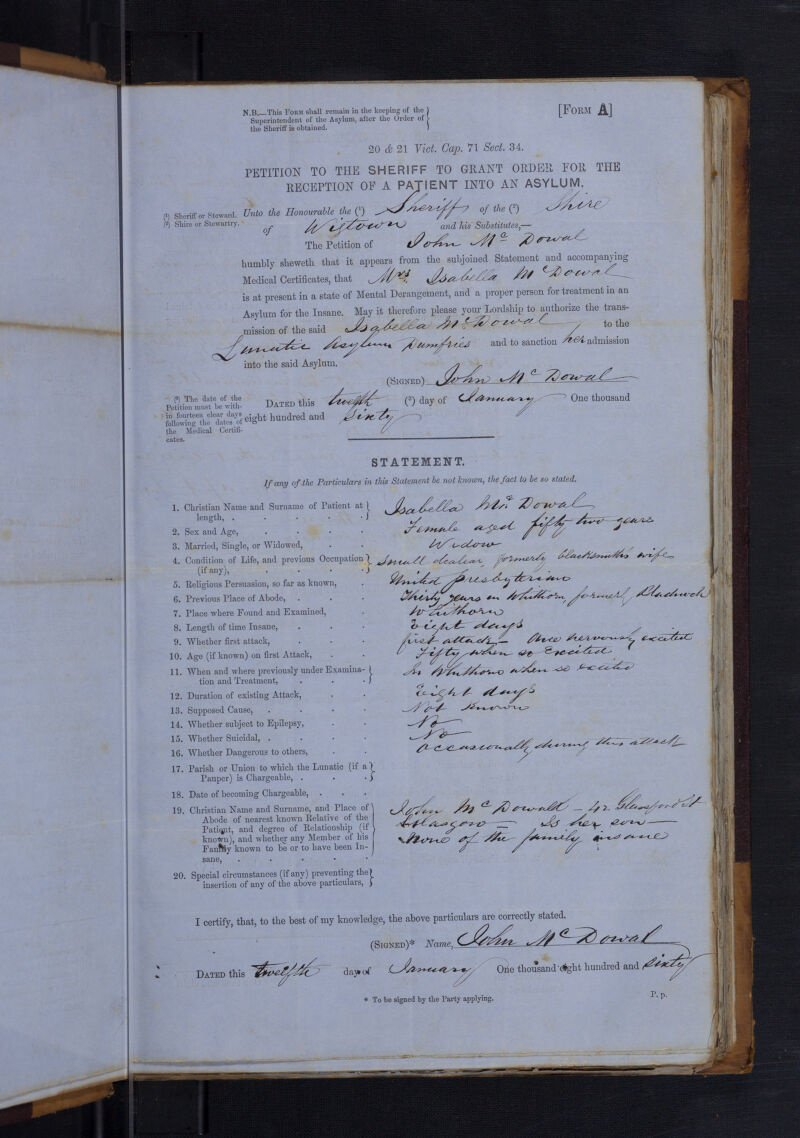 N.B.—This Form shall remain in the keeping of the
Superintendent of the Asylum, after the Order of
the Sheriff is obtained.
[Form A]
20 & 21 Vict. Cap. 71 Sect. 34.
PETITION TO THE SHERIFF TO GRANT ORDER FOR THE
RECEPTION OF A PATIENT INTO AN ASYLUM.
(1) Sheriff or Steward.
(2) Shire or Stewartry.
Unto the Honourable the (1) Sheriff of the (2) Shire
of Wigtown and his Substitutes,—
The Petition of John Mc Dowal
humbly sheweth that it appears from the subjoined Statement and accompanying
Medical Certificates, that Mrs. Isabella Mc Dowal
is at present in a state of Mental Derangement, and a proper person for treatment in an
Asylum for the Insane. May it therefore please your Lordship to authorize the trans-
mission of the said Isabella Mc Dowal to the
Lunatic Asylum Dumfries and to sanction her admission
into the said Asylum.
(Signed) John Mc Dowal
(3) The date of the
Petition must be with-
in fourteen clear days
following the dates of
the Medical Certifi-
cates.
Dated this twelfth (3) day of January One thousand
eight hundred and Sixty
STATEMENT.
If any of the Particulars in this Statement be not known, the fact to be so stated.
1. Christian Name and Surname of Patient at
length, . Isabella Mc Dowal
2. Sex and Age, Female aged fifty two years
3. Married, Single, or Widowed, Widow
4. Condition of Life, and previous Occupation
(if any), Small dealer, formerly blacksmith's wife
5. Religious Persuasion, so far as known, United Presbyterian
6. Previous Place of Abode, Thirty years in Whithorn, formerly Bladnoch
7. Place where Found and Examined, Whithorn
8. Length of time Insane, Eight days
9. Whether first attack, first attack – Once nervously excited
10. Age (if known) on first Attack, Fifty when so Excited
11. When and where previously under Examina-
tion and Treatment, In Whithorn when so excited
12. Duration of existing Attack, Eight days
13. Supposed Cause, Not known
14. Whether subject to Epilepsy, No
15. Whether Suicidal, No
16. Whether Dangerous to others, Occasionally during this attack
17. Parish or Union to which the Lunatic (if a
Pauper) is Chargeable,
18. Date of becoming Chargeable,
19. Christian Name and Surname, and Place of
Abode of nearest known Relative of the
Patient, and degree of Relationship (if
known), and whether any Member of his
Family known to be or to have been In-
sane,
John Mc Dowald – 42 Glassford St
Glasgow – Is her son –
None of the family insane
20. Special circumstances (if any) preventing the
insertion of any of the above particulars,
I certify, that, to the best of my knowledge, the above particulars are correctly stated.
(Signed)* Name, John Mc Dowal
Dated this twelfth day of January One thousand eight hundred and sixty
* To be signed by the Party applying.
P. p.